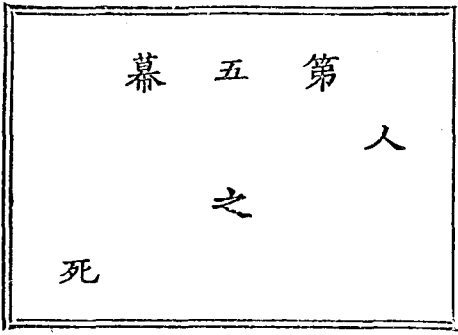 第五幕
人之死